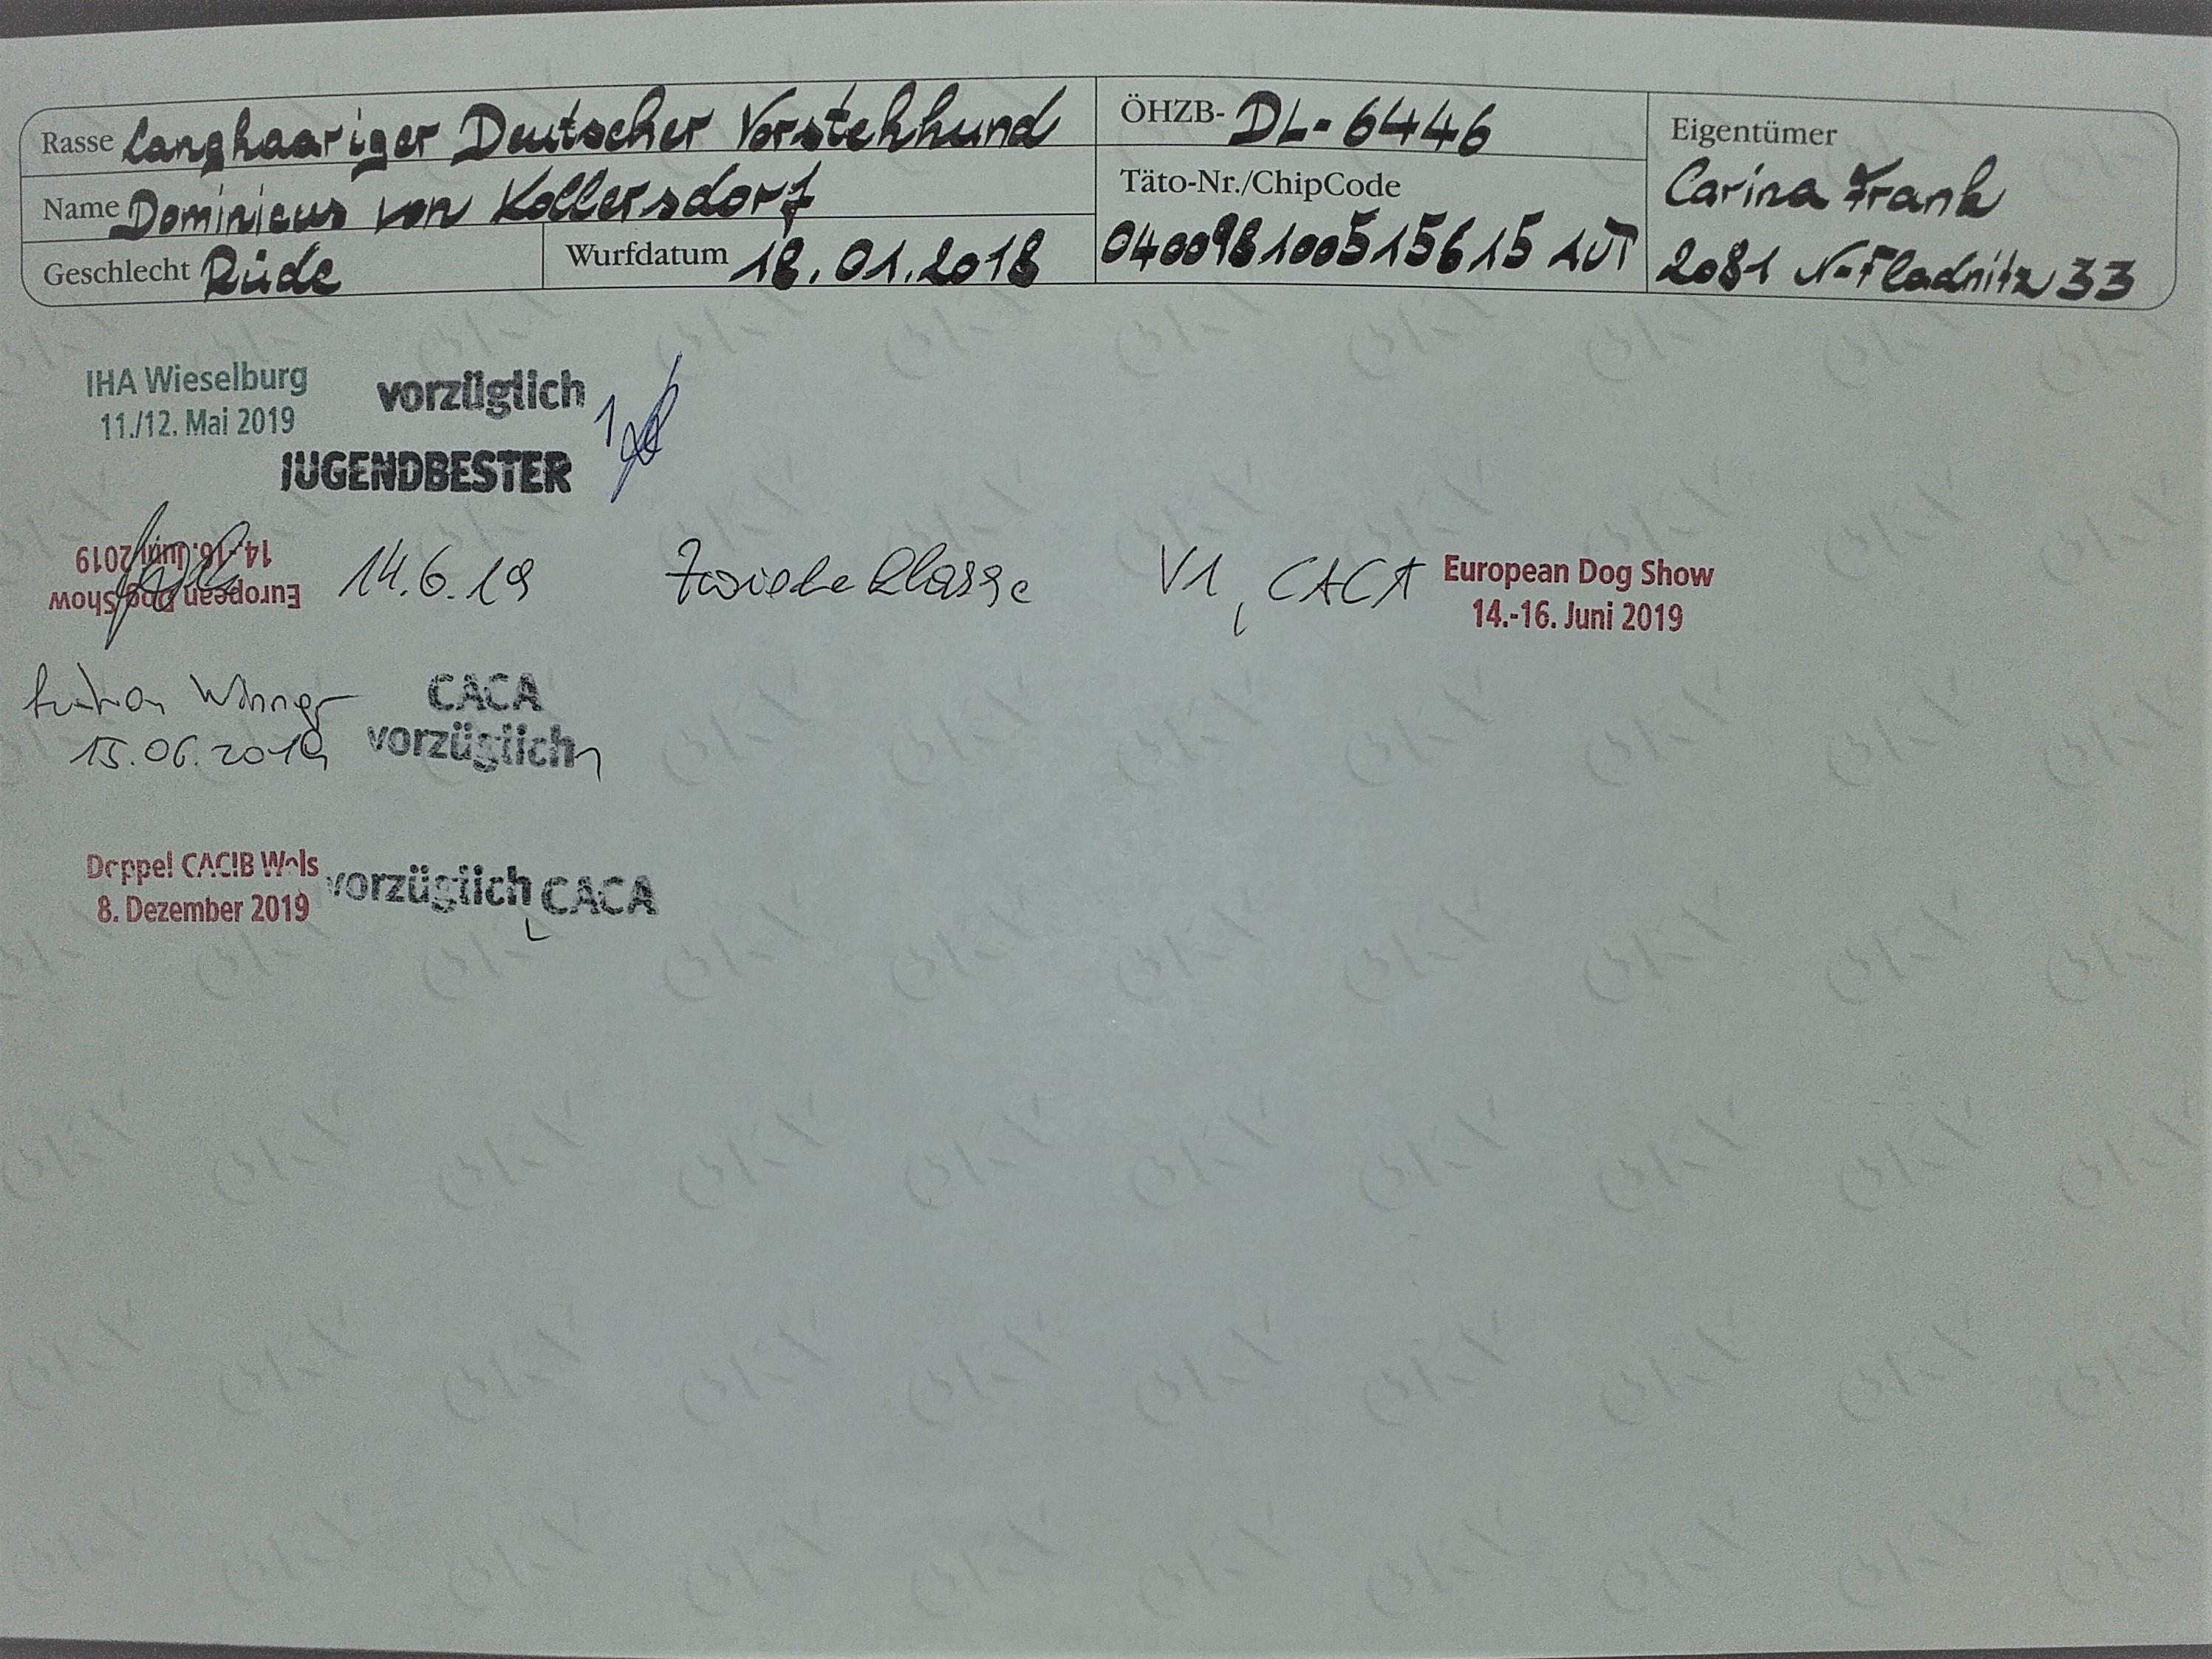 Rasse Langhaariger Deutscher Vorstehhund
ÖHZB- DL-6446
Eigentümer
Carina Frank
2081 N-Fladnitz 33
Name Dominicus von Kollersdorf
Täto-Nr./ChipCode
040098100515615 AUT
Geschlecht Rüde
Wurfdatum 18.01.2018
IHA Wieselburg
11./12. Mai 2019
vorzüglich 1
JUGENDBESTER
European Dog Show
14.-16. Juni 2019
14.6.19 V1, CACA
European Dog Show
14.-16. Juni 2019
Winner
15.06.2019
CACA
vorzüglich 1
Doppel CACIB Wels
8. Dezember 2019
vorzüglich CACA